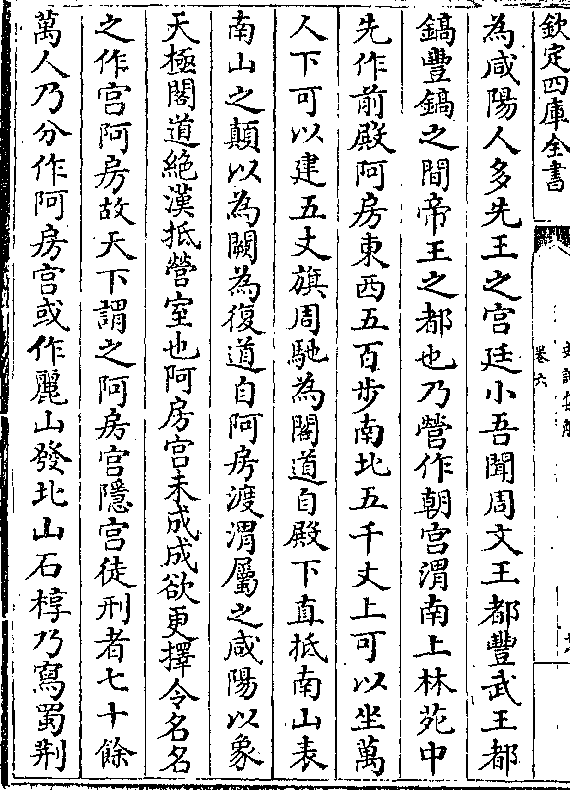 欽定四庫全書
卷六
為咸陽人多先王之宮廷小吾聞周文王都豐武王都
鎬豐鎬之間帝王之都也乃營作朝宮渭南上林苑中
先作前殿阿房東西五百步南北五千丈上可以坐萬
人下可以建五丈旗周馳為閣道自殿下直抵南山表
南山之顛以為闕為復道自阿房渡渭屬之咸陽以象
天極閣道絕漢抵營室也阿房宮未成成欲更擇令名名
之作宮阿房故天下謂之阿房宮隱宮徒刑者七十餘
萬人乃分作阿房宮或作麗山發北山石椁乃寫蜀荆